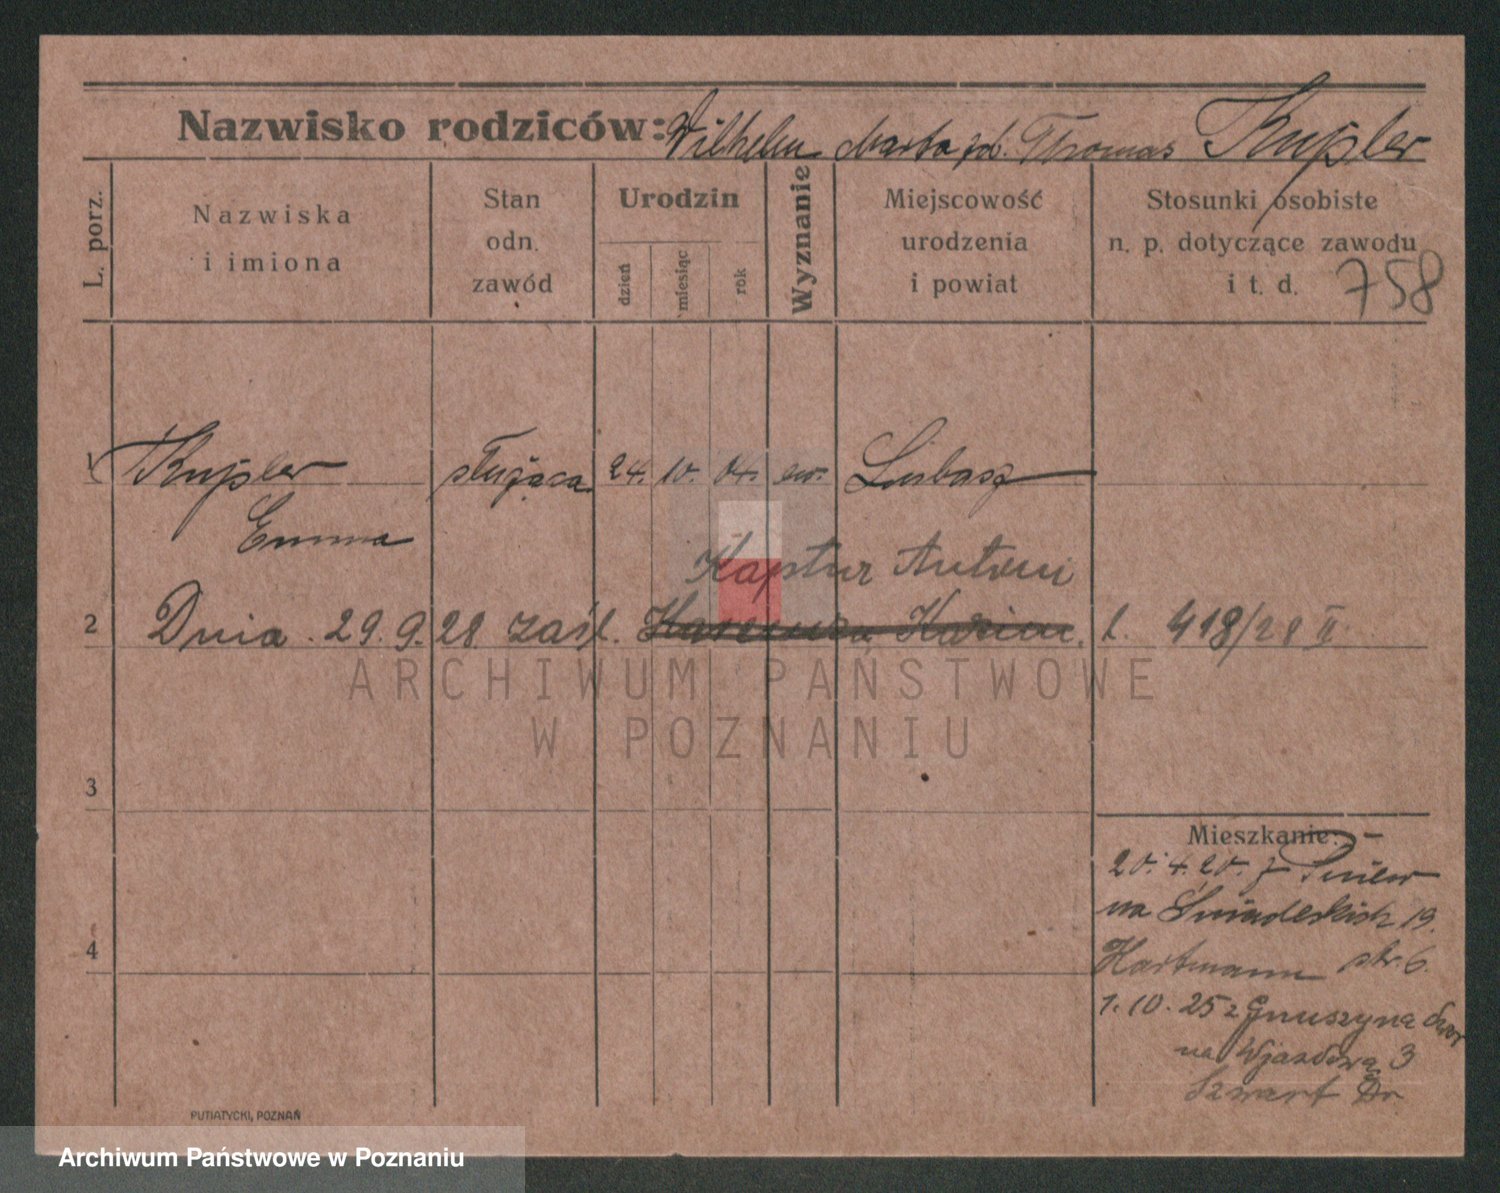 Nazwisko rodziców: Wilhelm Marta zd. Thomas Kupler
L. porz.
Nazwiska
i imiona
Stan
odn.
zawód
Urodzin
dzień
miesiąc
rok
Wyznanie
Miejscowość
urodzenia
i powiat
Stosunki osobiste
n. p. dotyczące zawodu
i t. d.
758
1 Kupler służąca 24. 10. 04. ew. Lubasz
Emma
Kaptur Antoni
2 Dnia 29.9.28 zaśl. l. 418/28 II
ARCHIWUM PAŃSTWOWE
W POZNANIU
3
Mieszkanie:
20.4.20. z Pniew
na Śniadeckich 19.
4
Hartmann str. 6.
1.10.25 z Gnuszyna
na Wjazdowa 3
Szwart Dr
PUTIATYCKI, POZNAŃ
Archiwum Państwowe w Poznaniu